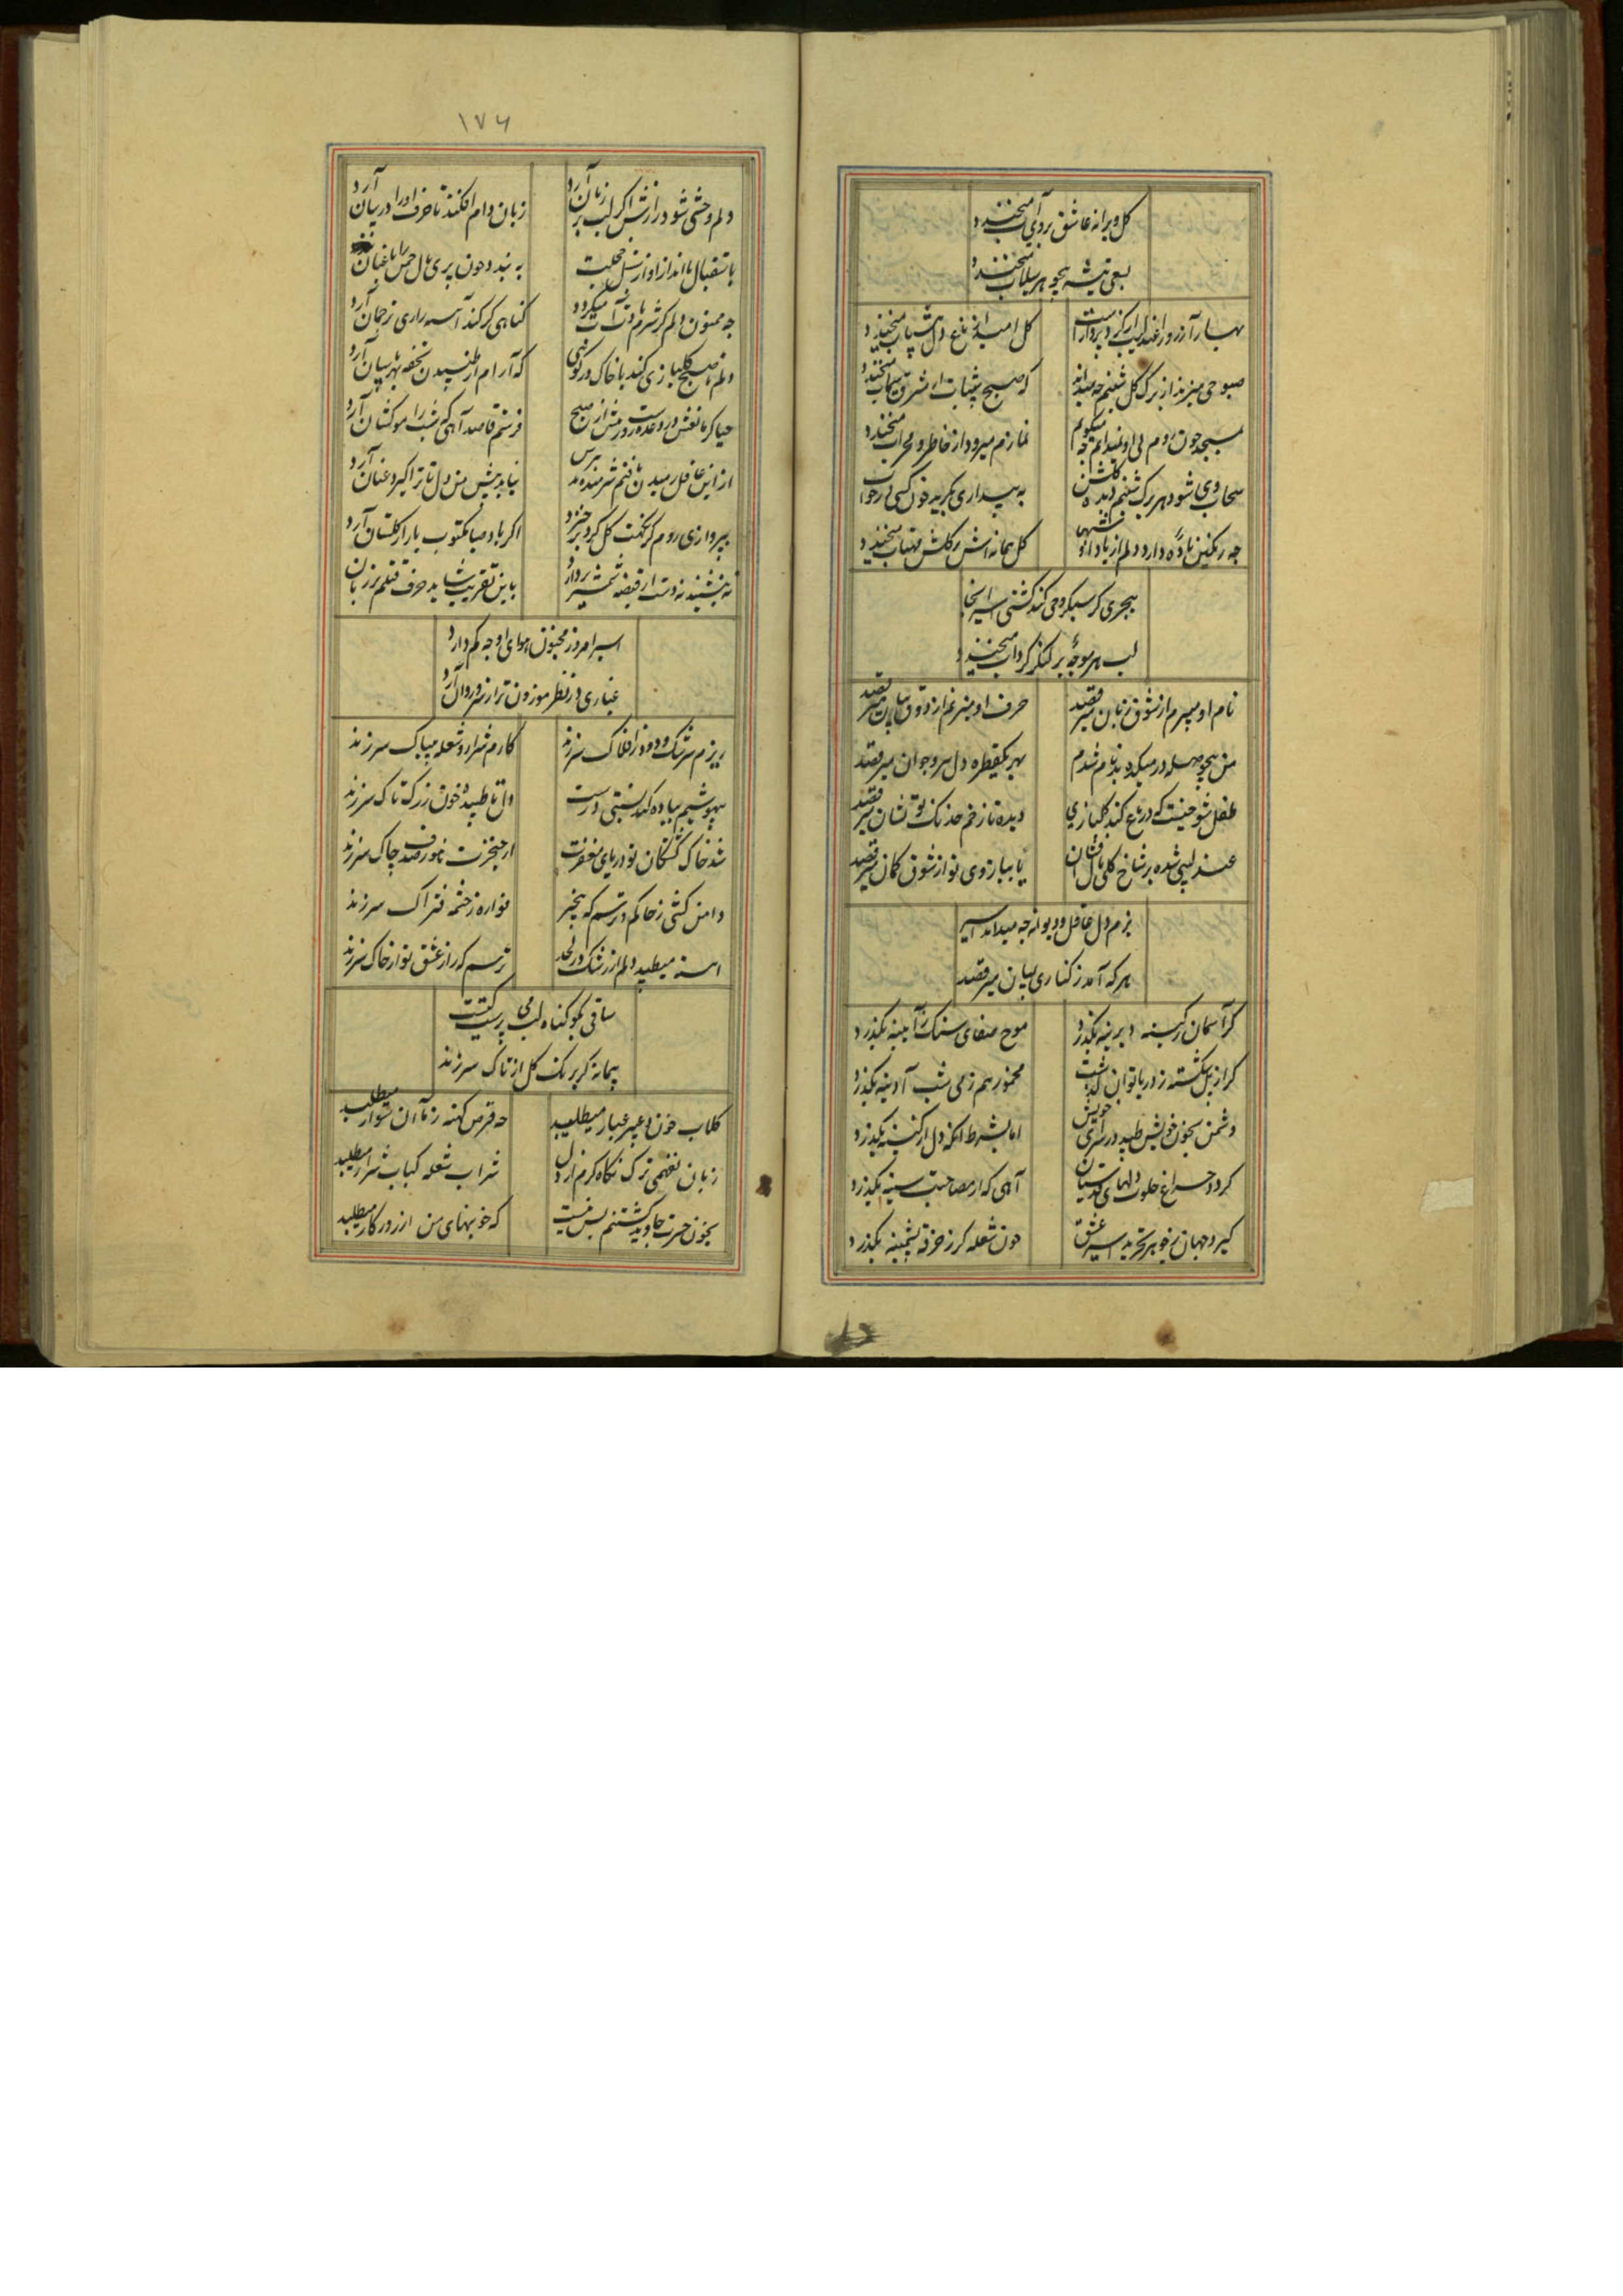 کل ویرانه عاشق بروی آب میخندد
بسعی تیشه همچو هر سیلاب میخندد
بهار آرزو را عندلیب از کریه پرداز است
کل امید از باغ دل بیتاب میخندد
صبوحی میزند از برک کل شبنم چه میداند
که صبح شتاب از مشرق سیماب میخندد
بمسجد چون روم بی او نمیدانم چه میکویم
نمازم میرود از خاطر و محراب میخندد
سحاب وی شود هر برک شبنم دیده کلشن
به بیداری بکرید چون کسی در خواب
چه رنکین باده دارد دلم از یاد
کل پیمانه اش در کلشن مهتاب میخندد
ببحری کر سبکروحی کند کشتی اسیر اینجا
لب هر موجه بر لنکر کرداب میخندد
نام او میبرم از شوق زبان میرقصد
حرف او میزنم از ذوق بیان میرقصد
من بیحوصله در میکده بدنام شدم
بهر یکقطره دل پیر و جوان میرقصد
طفل شوخیست که در باغ کند کلبازی
دیده تا زخم خدنک تو نشان میرقصد
عندلیبی شده بر شاخ کلی بال افشان
یا ببازوی تو از شوق کمان میرقصد
بزم دل عاقل و دیوانه چه میداند اسیر
هر که آمد ز کناری بمیان میرقصد
کر آسمان ز کینه دیرینه بکذرد
موج صفای سنک ز آیینه بکذرد
کر از پل شکسته ز دریا توان کذشت
مخمور هم ز می شب آدینه بکذرد
دشمن بخون خویش طپید در سرای خویش
اما بشرط آنکه دل از کینه بکذرد
کردد چراغ خلوت دلهای قدسیان
آهی که از مصاحبت سینه بکذرد
کیرد جهان ز جوهر تجرید اسیر عشق
چون شعله کر ز خرقه پشمینه بکذرد
۱۷۶
دلم وحشی شود رازش اکر لب بر زبان آرد
زبان دام افکند تا حرف او را در بیان آرد
باستقبال ما انداز او از بس خجلت
به بندد چون پری بال چمن را باغبان
چه ممنون دلم کر شرم بادت آب میکردد
کناهی کر کند آسیه رازی ترجمان آرد
دلم با صبح کلبازی کند با خاک در کوئی
که آرام از طپیدن تحفه بهر بیان آرد
حیا کر مانعش در وعده روز است پیش از صبح
فرستم قاصد آهی که شب را موکشان آرد
از این غافل رمیدن یافتم شرمنده ترس
نیاید پیش من دل تا ترا کیرد عنان آرد
بپروازی روم کز نکهت کل کرد برخیزد
اکر باد صبا مکتوب یار از کلستان آرد
نه بنشیند نه دست از قبضه شمشیر بردارد
باین تقریب شاید حرف قتلم بر زبان
اسیر امروز مجنون هوای او چه کم دارد
غباری در نظر موزون تر از سرو روان آرد
ریزم سرشک و دود ز افلاک سرزند
کارم شرار و شعله بیباک سرزند
بیهوشیم بباده کند نسبتی درست
دل تا طپیده خون ز رک تاک سرزند
شد خاک کشتکان تو دریای مغفرت
از خنجرت نمو ز صدف چاک سرزند
دامن کشی ز خاکم و ترسم که بیخبر
فواره ز چشمه فتراک سرزند
آهسته میطپد دلم از رشک در لحد
ترسم که راز عشق تو از خاک سرزند
ساقی بکو کناه لب می پرست کیست
پیمانه کر برنک کل از تاک سرزند
کلاب خون و عبیر غبار میطلبید
چه قرض کهنه ز ما آن سوار میطلبد
زبان نفهمی ترک نکاه کرم از دل
شراب شعله کباب شرار میطلبد
بخون حسرت جاوید کشتنم بس نیست
که خونبهای من از روزکار میطلبد